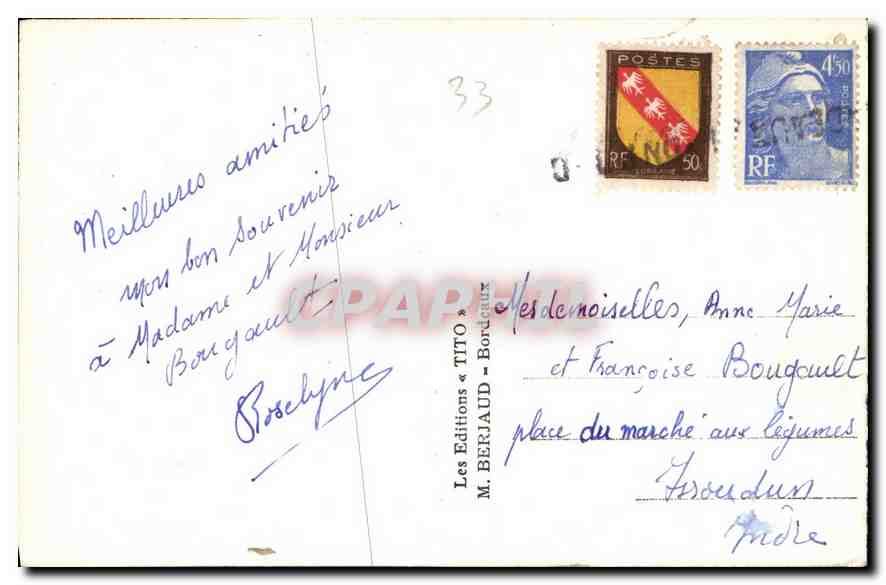 33
POSTES
RF
50
LORRAINE
4f50
RF
Meilleures amitiés
mon bon souvenir
à Madame et Monsieur
Bougault
Roselyne
CPAPHIL
Les Editions « TITO »
M. BERJAUD - Bordeaux
Mesdemoiselles, Anne Marie
et Françoise Bougault
place du marché aux légumes
Issoudun
Indre